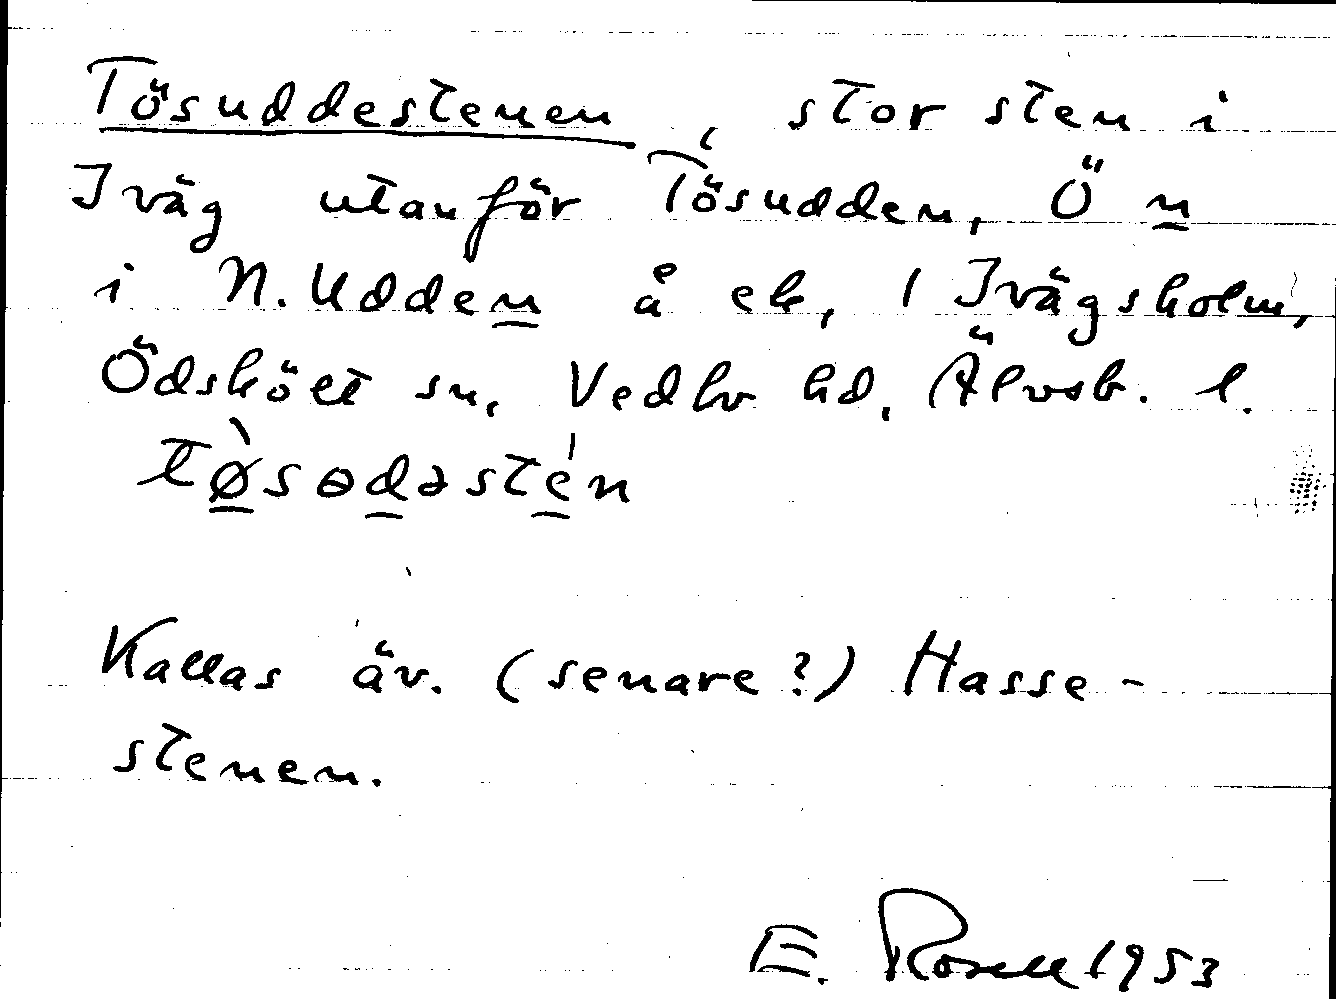 Tösuddestenen, stor sten i
Iväg utanför Tösudden, Ö n
i N. Udden å ek, 1 Ivägsholm,
Ödsköłt sn, Vedbo hd, Älvsb. l.
tø̀sɵdəsté̍n
Kallas äv. (senare?) Hasse-
stenen.
E. Rosell 1953